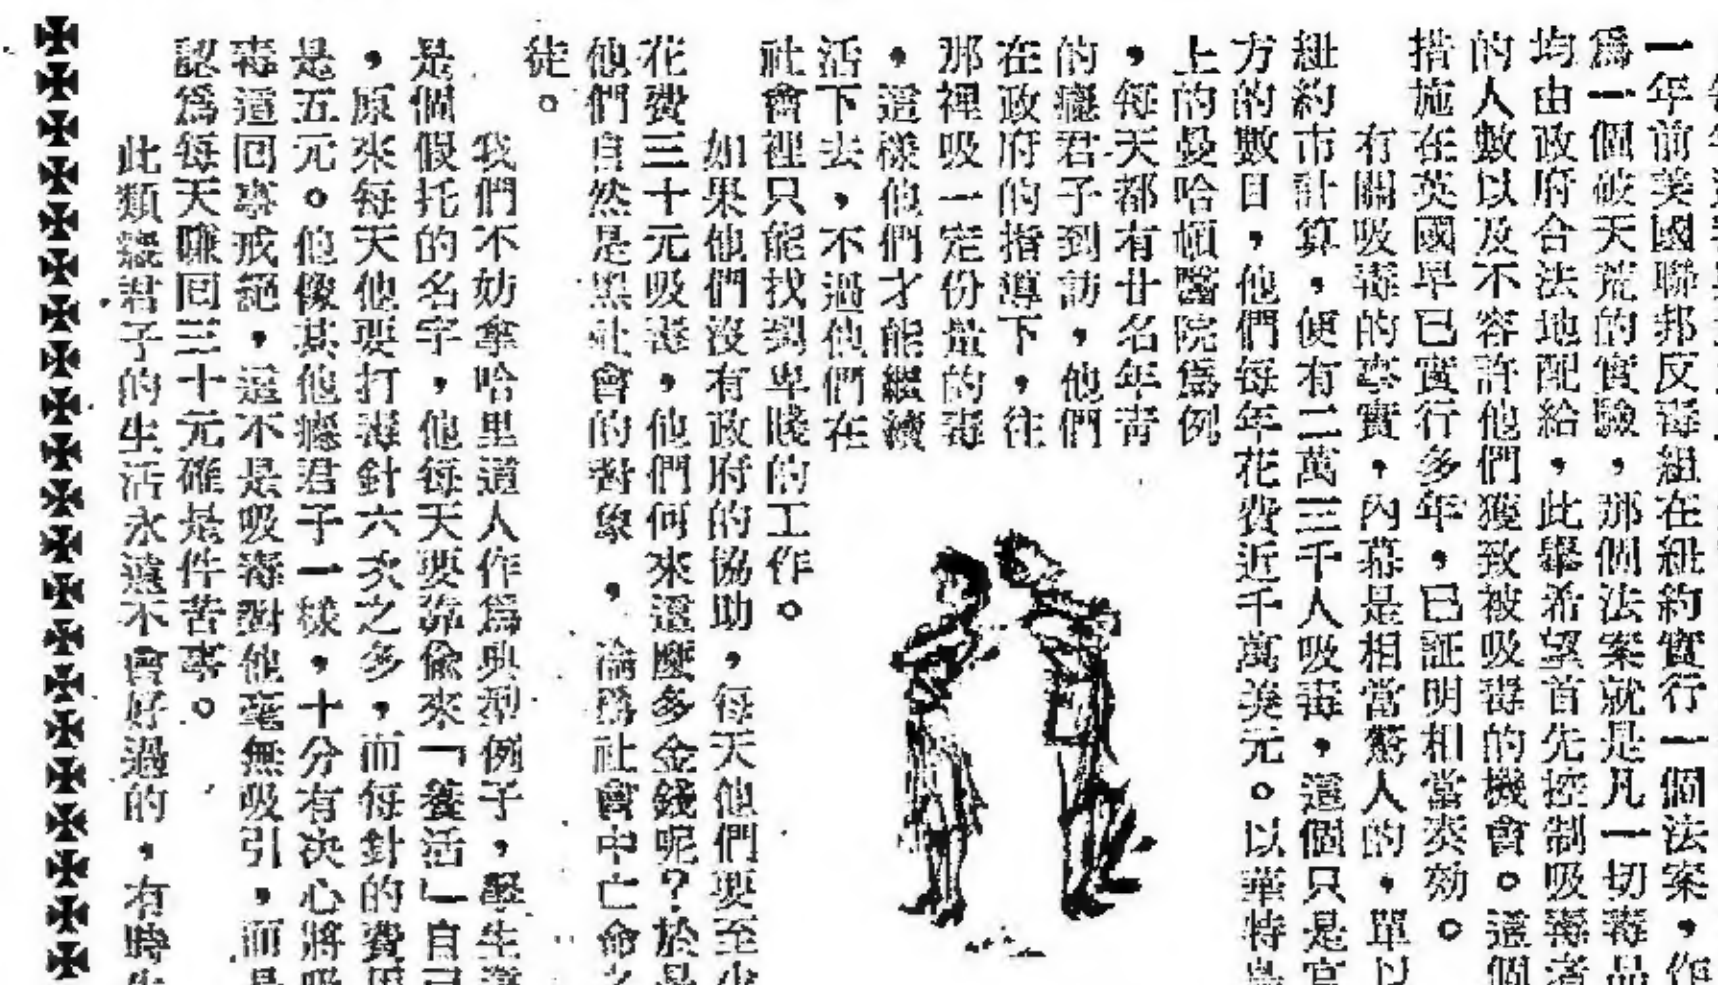 一年前美國聯邦反毒組在紐約實行一個法案，作
爲一個破天荒的實驗，那個法案就是凡一切毒品
均由政府合法地配給，此舉希望首先控制吸毒者
的人數以及不容許他們獲致被吸毒的機會。這個
措施在英國早已實行多年，已証明相當奏効。
有關吸毒的事實，內幕是相當驚人的，單以
紐約市計算，便有二萬三千人吸毒，這個只是官
方的數目，他們每年花費近千萬美元。以華特島
上的曼哈頓醫院爲例
，每天都有廿名年青
的癮君子到訪，他們
在政府的指導下，往
那裡吸一定份量的毒
，這樣他們才能繼續
活下去，不過他們在
社會裡只能找到卑賤的工作。
如果他們沒有政府的協助，每天他們要至少
花費三十元吸毒，他們何來這麼多金錢呢？於是
他們自然是黑社會的對象，淪爲社會中亡命之
徒。
我們不妨拿哈里道人作爲典型例子，學生
是個假托的名字，他每天要靠偷來「養活」自己
，原來每天他要打毒針六次之多，而每針的費用
是五元。他像其他癮君子一樣，十分有决心將吸
毒這回事戒絕，這不是吸毒對他毫無吸引，而是
認爲每天賺回三十元確是件苦事。
此類癮君子的生活永遠不會好過的，有時